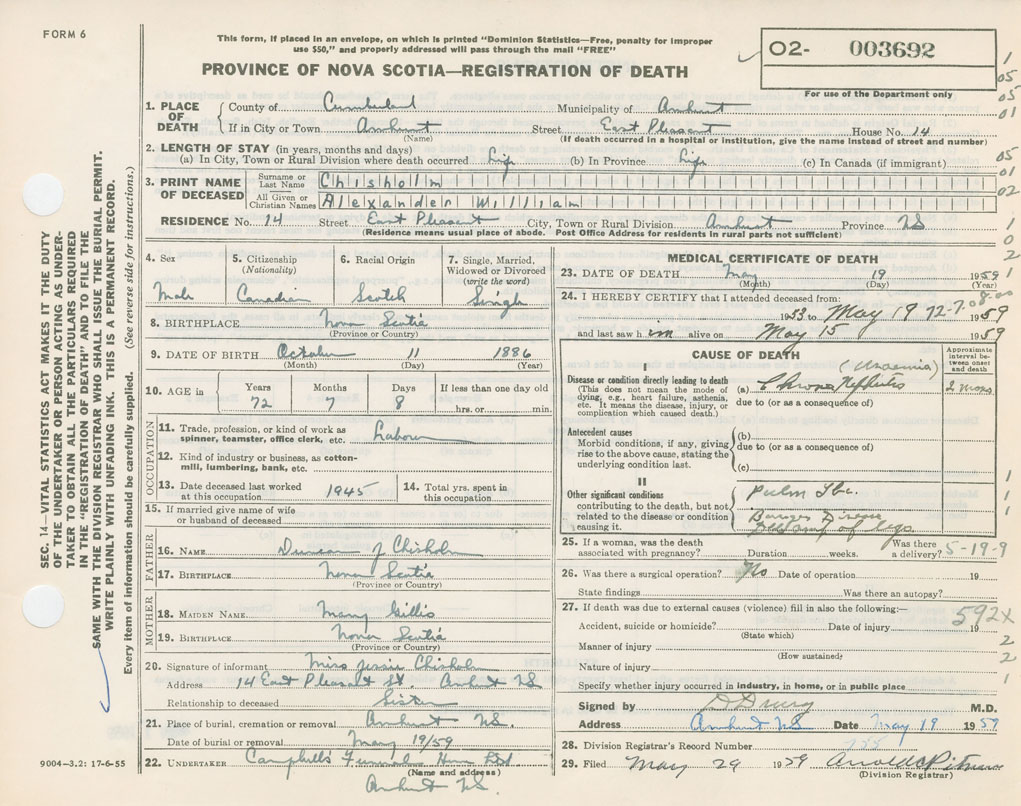 FORM 6
This form, if placed in an envelope, on which is printed "Dominion Statistics—Free, penalty for improper
use $50," and properly addressed will pass through the mail "FREE"
O2- 003692
For use of the Department only
PROVINCE OF NOVA SCOTIA—REGISTRATION OF DEATH
1. PLACE OF DEATH
County of Cumberland Municipality of Amherst
If in City or Town Amherst Street East Pleasant House No. 14
(Name) (If death occurred in a hospital or institution, give the name instead of street and number)
2. LENGTH OF STAY (in years, months and days)
(a) In City, Town or Rural Division where death occurred Life (b) In Province Life (c) In Canada (if immigrant)
3. PRINT NAME OF DECEASED
Surname or Last Name Chisholm
All Given or Christian Names Alexander William
RESIDENCE No. 14 Street East Pleasant City, Town or Rural Division Amherst Province NS
(Residence means usual place of abode. Post Office Address for residents in rural parts not sufficient)
4. Sex Male
5. Citizenship (Nationality) Canadian
6. Racial Origin Scotch
7. Single, Married, Widowed or Divorced (write the word) Single
8. BIRTHPLACE Nova Scotia
(Province or Country)
9. DATE OF BIRTH October 11 1886
(Month) (Day) (Year)
10. AGE in Years 72 Months 7 Days 8 If less than one day old hrs. or min.
OCCUPATION
11. Trade, profession, or kind of work as spinner, teamster, office clerk, etc. Labour
12. Kind of industry or business, as cotton-mill, lumbering, bank, etc.
13. Date deceased last worked at this occupation 1945
14. Total yrs. spent in this occupation
15. If married give name of wife or husband of deceased
FATHER
16. NAME Duncan J Chisholm
17. BIRTHPLACE Nova Scotia
(Province or Country)
MOTHER
18. MAIDEN NAME Mary Gillis
19. BIRTHPLACE Nova Scotia
(Province or Country)
20. Signature of informant Miss Jessie Chisholm
Address 14 East Pleasant St. Amherst NS
Relationship to deceased Sister
21. Place of burial, cremation or removal Amherst NS.
Date of burial or removal May 19/59
22. UNDERTAKER Campbell's Funeral Home Ltd
(Name and address)
Amherst NS.
MEDICAL CERTIFICATE OF DEATH
23. DATE OF DEATH May 19 1959
(Month) (Day) (Year)
24. I HEREBY CERTIFY that I attended deceased from:
1953 to May 19 1959
72-7-08-00
and last saw him alive on May 15 1959
CAUSE OF DEATH
Approximate interval between onset and death
I
Disease or condition directly leading to death
(This does not mean the mode of dying, e.g., heart failure, asthenia, etc. It means the disease, injury, or complication which caused death.)
(Uraemia)
(a) Chronic Nephritis 2 mons
due to (or as a consequence of)
Antecedent causes
Morbid conditions, if any, giving rise to the above cause, stating the underlying condition last.
(b)
due to (or as a consequence of)
(c)
II
Other significant conditions contributing to the death, but not related to the disease or condition causing it.
Pulm Tbc.
of legs
25. If a woman, was the death associated with pregnancy? Duration weeks. Was there a delivery?
5-19-9
26. Was there a surgical operation? No Date of operation 19
State findings Was there an autopsy?
27. If death was due to external causes (violence) fill in also the following:—
592X
Accident, suicide or homicide? Date of injury 19
(State which)
Manner of injury
(How sustained)
Nature of injury
Specify whether injury occurred in industry, in home, or in public place
Signed by D Drury M.D.
Address Amherst NS Date May 19 1959
28. Division Registrar's Record Number
29. Filed May 29 1959
(Division Registrar)
SEC. 14—VITAL STATISTICS ACT MAKES IT THE DUTY
OF THE UNDERTAKER OR PERSON ACTING AS UNDER-
TAKER TO OBTAIN ALL THE PARTICULARS REQUIRED
IN THE "REGISTRATION OF DEATH" AND TO FILE THE
SAME WITH THE DIVISION REGISTRAR WHO SHALL ISSUE THE BURIAL PERMIT.
WRITE PLAINLY WITH UNFADING INK. THIS IS A PERMANENT RECORD.
Every item of information should be carefully supplied. (See reverse side for instructions.)
9004—3.2: 17-6-55
1
05
05
01
05
01
02
1
0
2
1
1
1
1
2
2
1